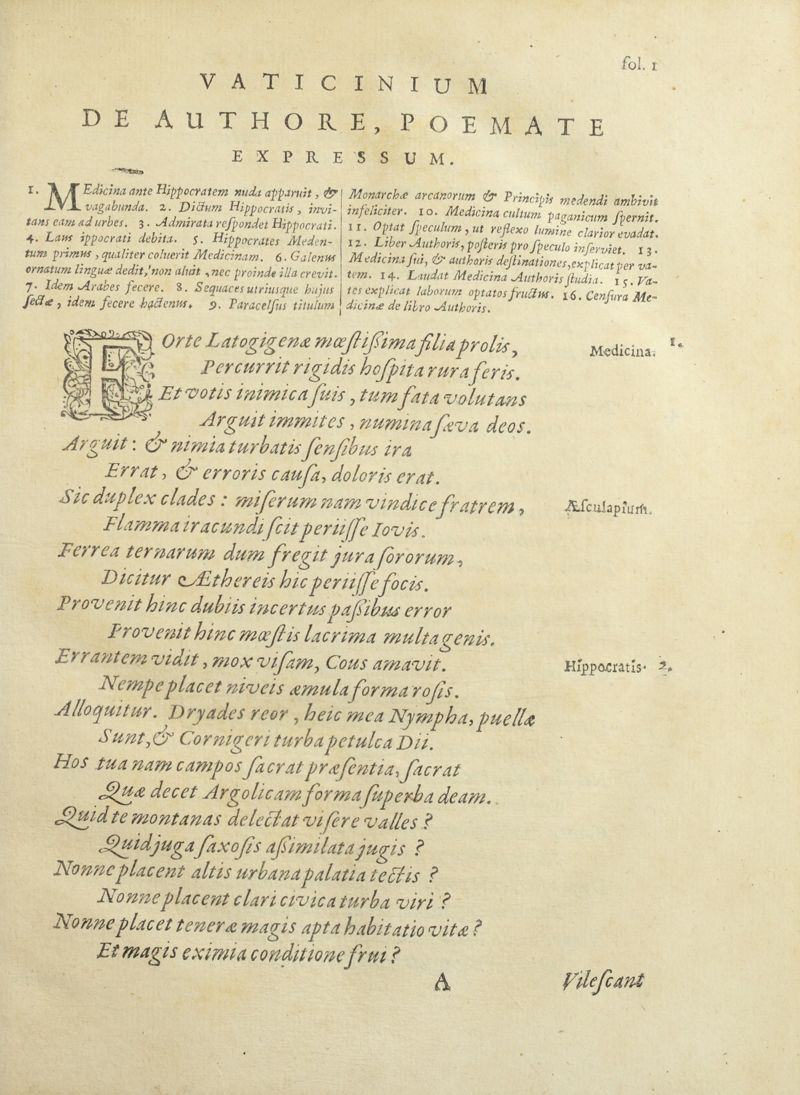 fol. 1
VATICINIUM
DE AUTHORE, POEMATE
EXPRESSUM.
1. MEdicina ante Hippocratem nuda apparuit, &
vagabunda. 2. Dictum Hippocratis, invi-
tans eam ad urbes. 3. Admirata reſpondet Hippocrati.
4. Laus ippocrati debita. 5. Hippocrates Meden-
tum primus, qualiter coluerit Medicinam. 6. Galenus
ornatum linguæ dedit, non aluit, nec proinde illa crevit.
7. Idem Arabes fecere. 8. Sequaces utriusque hujus
ſectæ, idem fecere hactenus. 9. Paracelſus titulum
Monarchæ arcanorum & Principis medendi ambivit
infeliciter. 10. Medicina cultum paganicum ſpernit.
11. Optat ſpeculum, ut reflexo lumine clarior evadat.
12. Liber Authoris, poſteris pro ſpeculo inſerviet. 13.
Medicina ſui, & authoris deſtinationes, explicat per va-
tem. 14. Laudat Medicina Authoris ſtudia. 15. Va-
tes explicat laborum optatos fructus. 16. Cenſura Me-
dicinæ de libro Authoris.
FOrte Latogigenæ mœſtißima filia prolis,
Medicina. 1.
Percurrit rigidis hoſpita rura feris.
Et votis inimica ſuis, tum fata volutans
Arguit immites, numina ſæva deos.
Arguit: & nimia turbatis ſenſibus ira
Errat, & erroris cauſa, doloris erat.
Sic duplex clades: miſerum nam vindice fratrem,
Æſculapium.
Flamma iracundi ſcit periiſſe Iovis.
Ferrea ternarum dum fregit jura ſororum,
Dicitur Æthereis hic periiſſe focis.
Provenit hinc dubiis incertus paßibus error
Provenit hinc mœſtis lacrima multa genis.
Errantem vidit, mox viſam, Cous amavit.
Hippocratis. 2.
Nempe placet niveis æmula forma roſis.
Alloquitur. Dryades reor, heic mea Nympha, puellæ
Sunt, & Cornigeri turba petulca Dii.
Hos tua nam campos ſacrat præſentia, ſacrat
Quæ decet Argolicam forma ſuperba deam.
Quid te montanas delectat viſere valles?
Quid juga ſaxoſis aßimilata jugis?
Nonne placent altis urbana palatia tectis?
Nonne placent clari civica turba viri?
Nonne placet teneræ magis apta habitatio vitæ?
Et magis eximia conditione frui?
A
Vileſcant